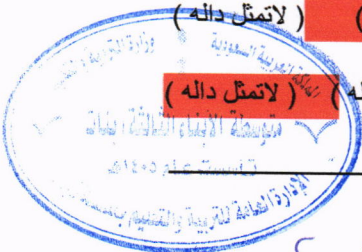 ( ( لاتمثل داله )
له ) ( لاتمثل داله )
المملكة العربية السعودية
وزارة التربية والتعليم
متوسطة الأبناء الثالثة بنات
تأسست عام ١٤٠٥هـ
الإدارة العامة للتربية والتعليم